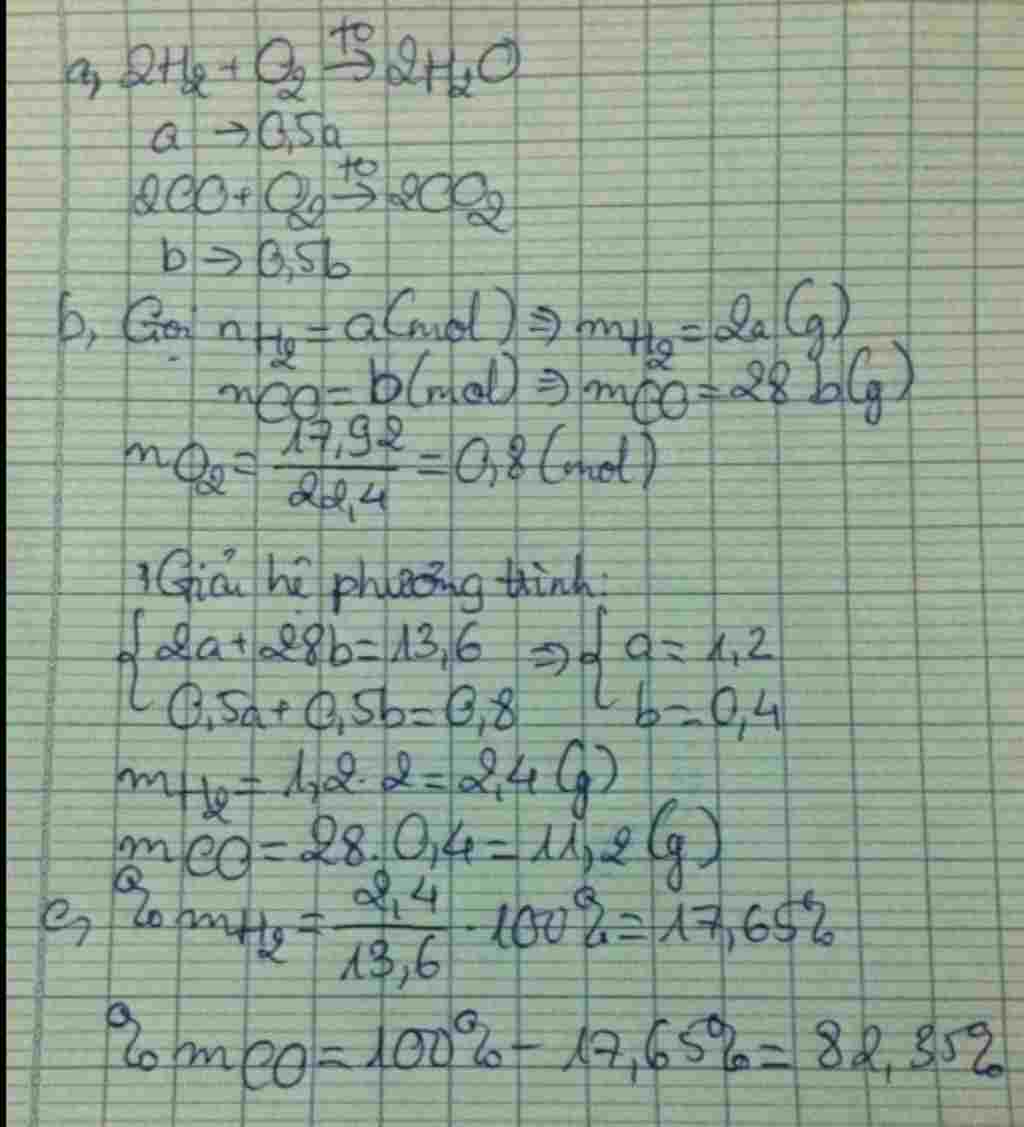 a, 2H₂ + O₂ →(t⁰) 2H₂O
a → 0,5a
2CO + O₂ →(t⁰) 2CO₂
b → 0,5b
b, Gọi nH₂ = a(mol) ⇒ mH₂ = 2a(g)
nCO = b(mol) ⇒ mCO = 28b(g)
nO₂ = 17,92/22,4 = 0,8(mol)
Giải hệ phương trình:
{ 2a + 28b = 13,6 ⇒ { a = 1,2
0,5a + 0,5b = 0,8 b = 0,4
mH₂ = 1,2 . 2 = 2,4(g)
mCO = 28 . 0,4 = 11,2(g)
c, %mH₂ = 2,4/13,6 . 100% = 17,65%
%mCO = 100% - 17,65% = 82,35%